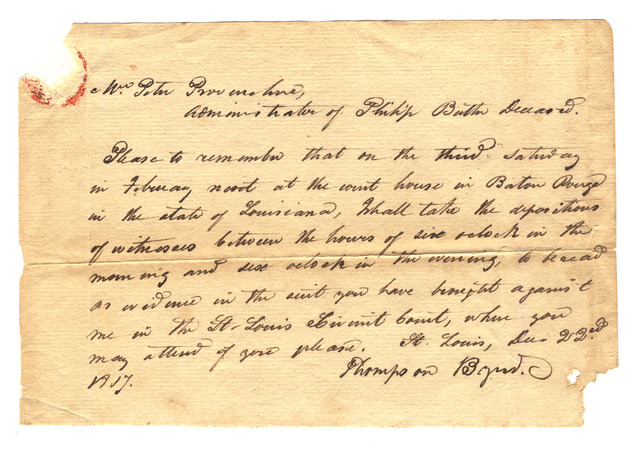 Mr. Peter Provenchere,
Administrator of Philip Butler Deceased.
Please to remember that on the third Saturday
in February next at the court house in Baton Rouge
in the state of Louisiana, I shall take the depositions
of witnesses between the hours of six oclock in the
morning and six oclock in the evening, to be read
as evidence in the suit you have brought against
me in the St. Louis Circuit Court, where you
may attend if you please. St. Louis, Dec 22nd
1817.
Thompson Byrd.